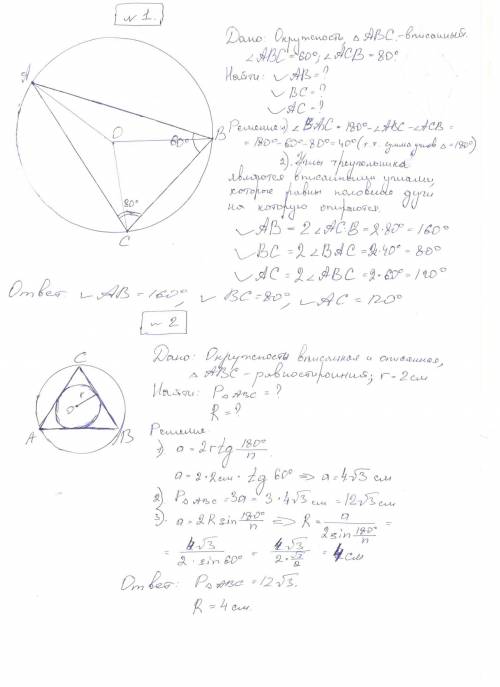 № 1.
Дано: Окружность, △ABC - вписанный.
∠ABC = 60°; ∠ACB = 80°
Найти: ◡AB = ?
◡BC = ?
◡AC = ?
Решение: 1) ∠BAC = 180° - ∠ABC - ∠ACB =
= 180° - 60° - 80° = 40° (т.к. сумма углов △ = 180°)
2). Углы треугольника
являются вписанными углами,
которые равны половине дуги
на которую опираются
◡AB = 2∠ACB = 2·80° = 160°
◡BC = 2∠BAC = 2·40° = 80°
◡AC = 2∠ABC = 2·60° = 120°
Ответ: ◡AB = 160°, ◡BC = 80°, ◡AC = 120°
A
O
B
60°
80°
C
№ 2
Дано: Окружность вписанная и описанная,
△ABC - равносторонний; r = 2 см
Найти: P△ABC = ?
R = ?
Решение
1) a = 2r tg 180°/n
a = 2·2см · tg 60° => a = 4√3 см
2) P△ABC = 3a = 3·4√3 см = 12√3 см
3) a = 2R sin 180°/n => R = a/(2 sin 180°/n) =
= 4√3/(2·sin 60°) = 4√3/(2·√3/2) = 4 см
Ответ: P△ABC = 12√3.
R = 4 см.
C
r
O
A
B